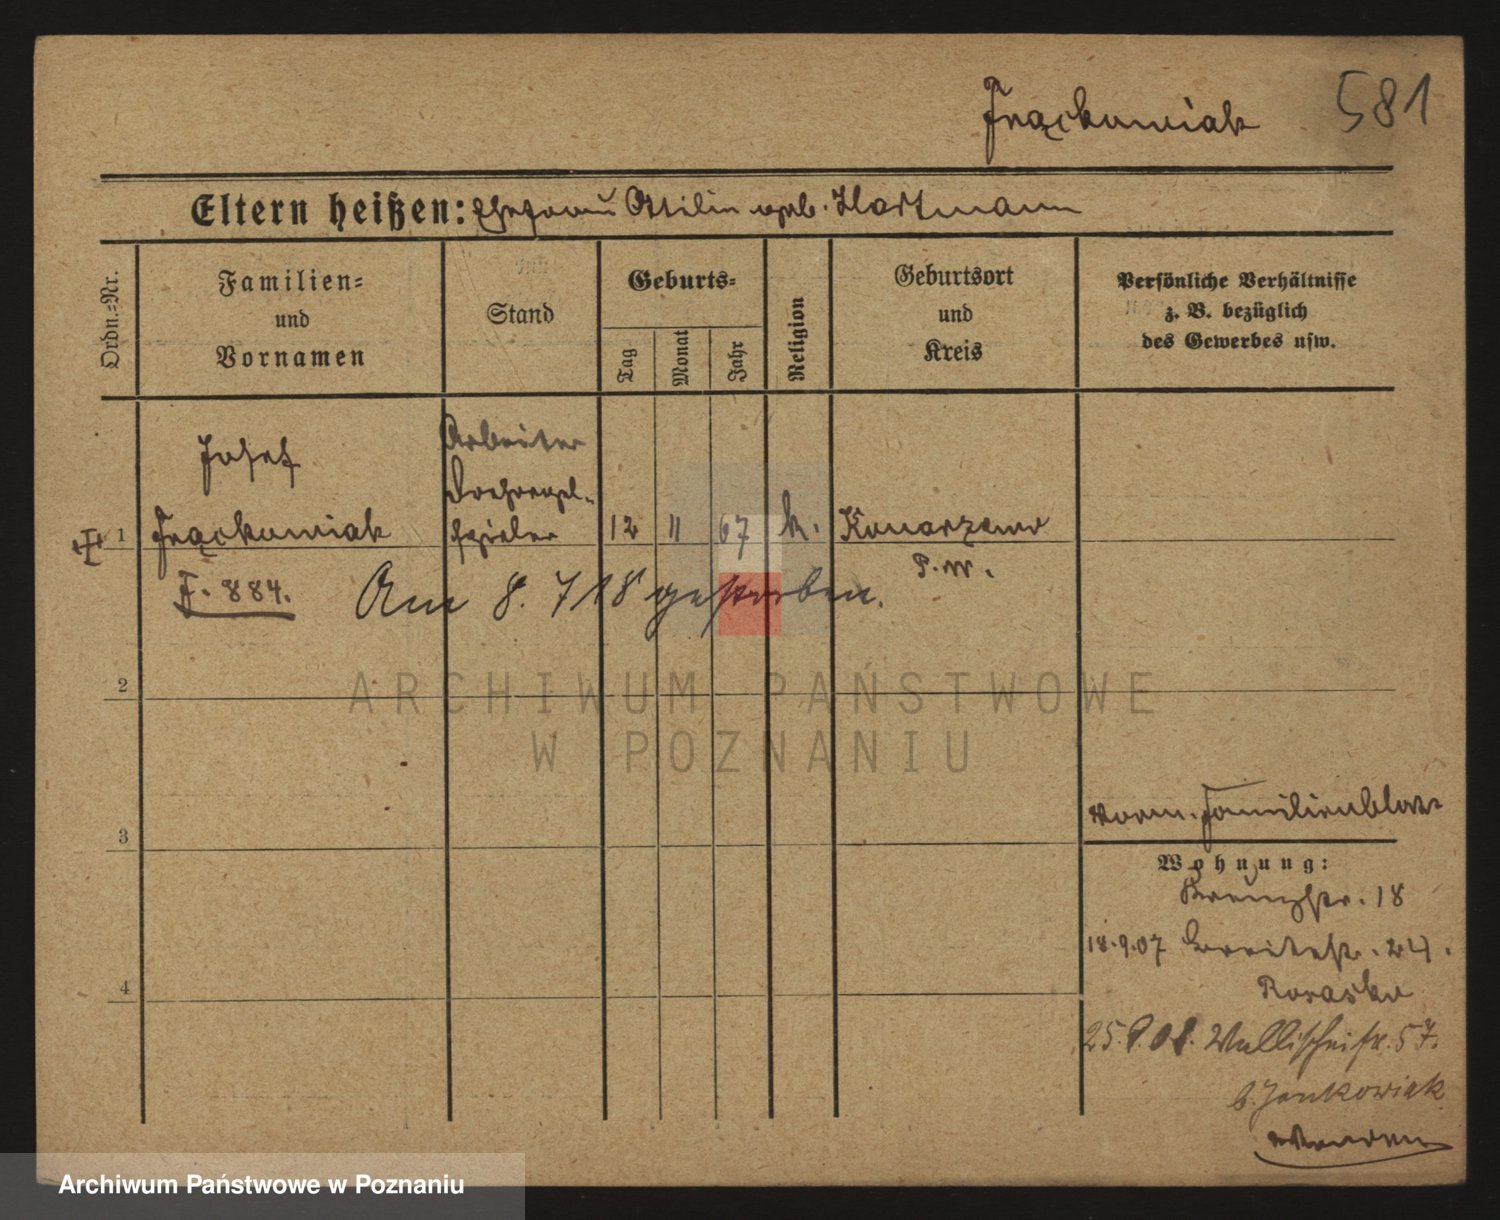 581
Frąckowiak
Eltern heißen: Ehefrau Ottilie geb. Hartmann
Ordn.=Nr.
Familien=
und
Vornamen
Stand
Geburts=
Tag
Monat
Jahr
Religion
Geburtsort
und
Kreis
Persönliche Verhältnisse
z. B. bezüglich
des Gewerbes usw.
Josef
Arbeiter
Drehorgel-
1 Frąckowiak spieler 12 11 67 k. Konarzewo
P. W.
F. 884.
Am 8. 7 18 gestorben.
2
ARCHIWUM PAŃSTWOWE
W POZNANIU
3
4
Familienblatt
Wohnung:
Kreuzstr. 18
18.9.07 Breitestr. 24.
25.8.08. Wallischeistr. 57.
b. Jankowiak
Archiwum Państwowe w Poznaniu